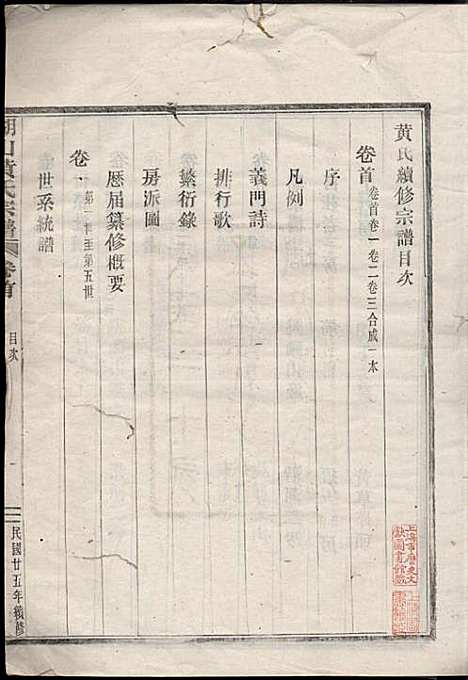 黃氏續修宗譜目次
卷首 卷首卷一卷二卷三合成一本
序
凡例
義門詩
排行歌
蘩衍錄
房派圖
歷屆纂修概要
卷一 第一世至第五世
世系統譜
山黃氏宗譜 卷首 目次 民國廿五年續修
上海市歷史文
獻圖書館藏